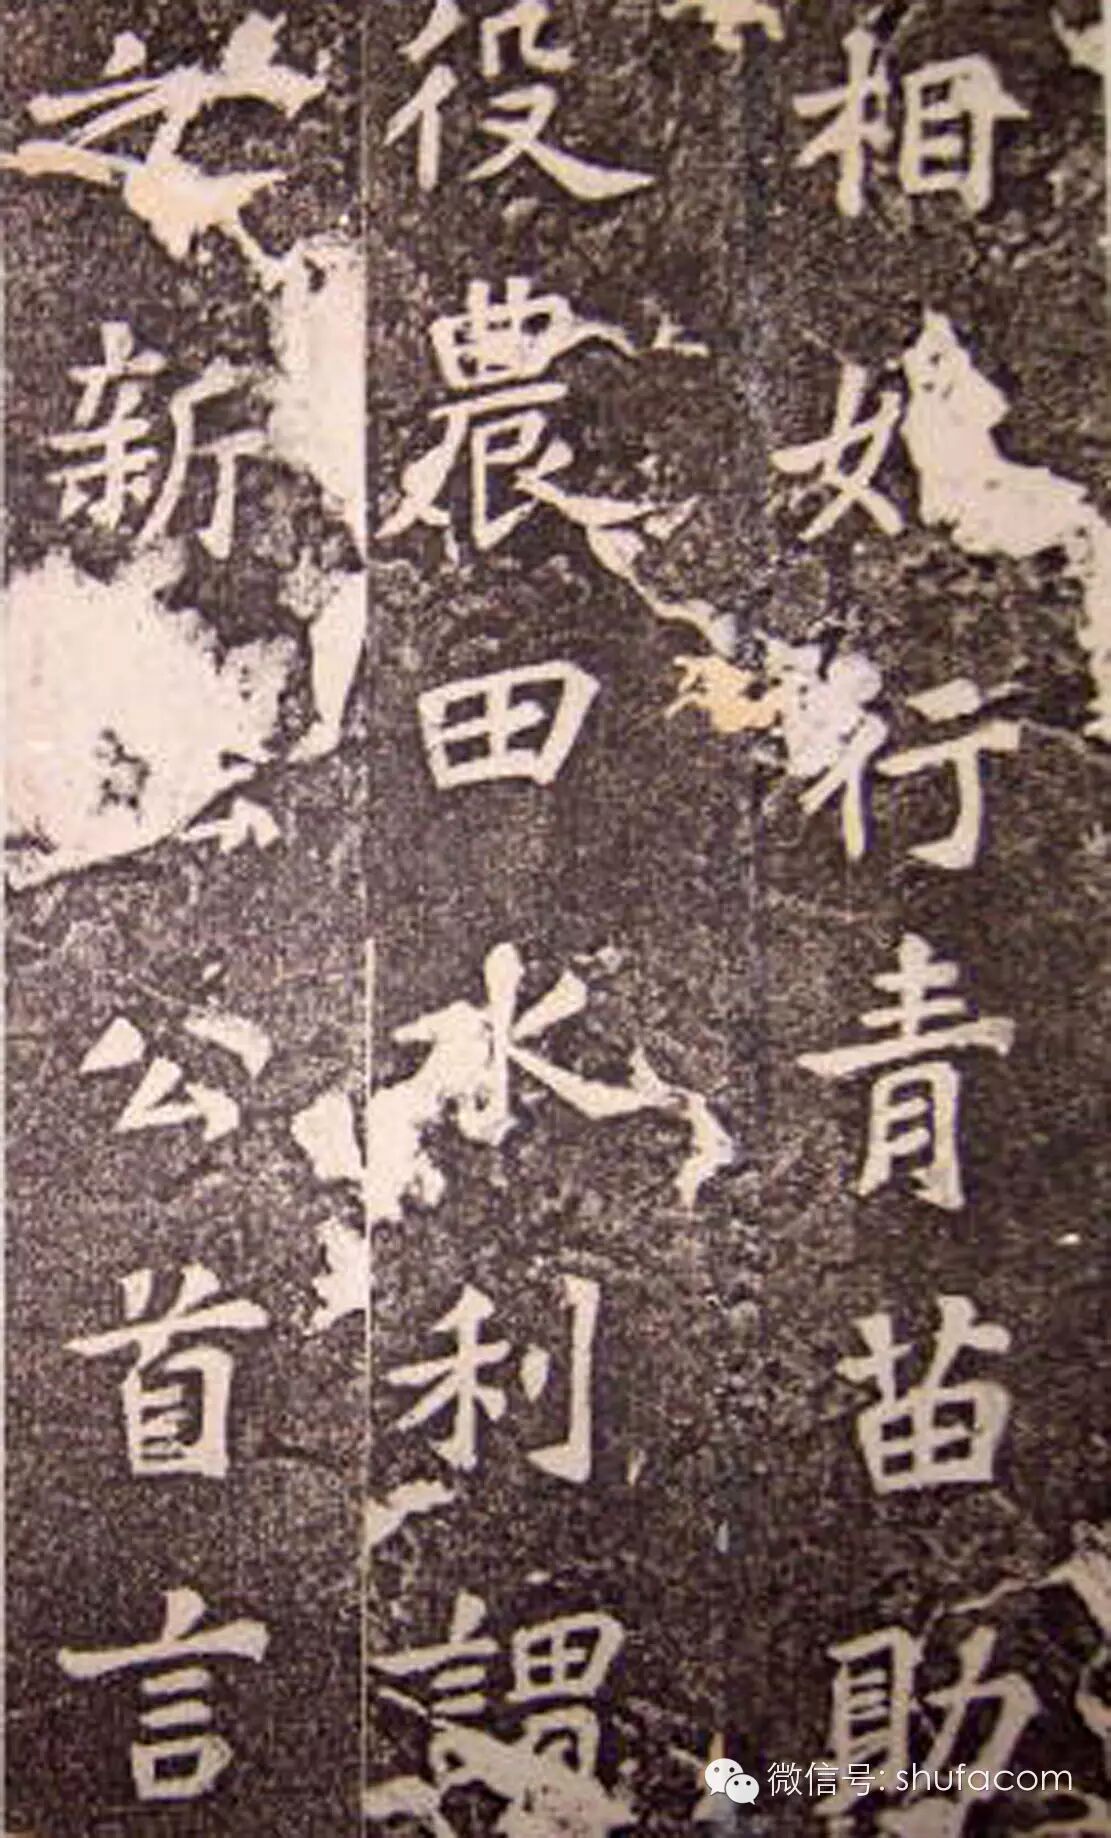 相始行青苗助
役農田水利謂
之新法公首言
微信号: shufacom